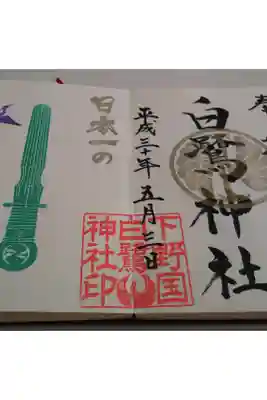 奉
白鷺神社
平成三十年五月三日
下野国
白鷺
神社印
日本一の